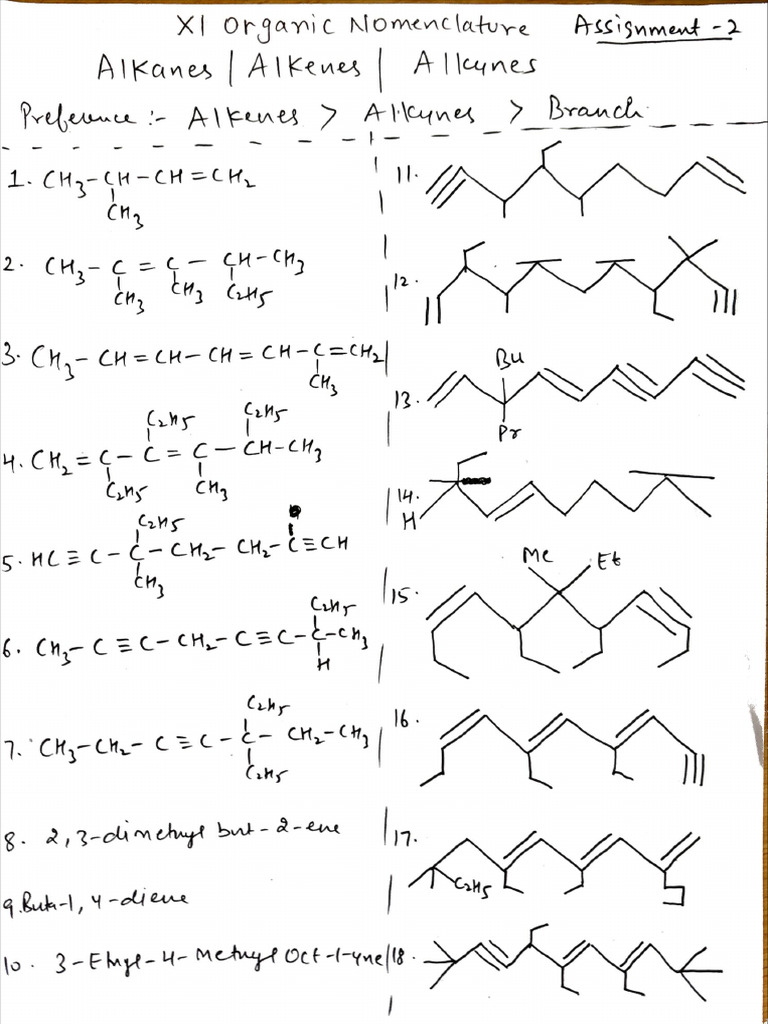 XI Organic Nomenclature Assignment-2
Alkanes | Alkenes | Alkynes
Preference :- Alkenes > Alkynes > Branch
1. CH3-CH-CH=CH2
CH3
2. CH3-C=C-CH-CH3
CH3 CH3 C2H5
3. CH3-CH=CH-CH=CH-C=CH2
CH3
C2H5 C2H5
4. CH2=C-C=C-CH-CH3
C2H5 CH3
C2H5
5. HC≡C-C-CH2-CH2-C≡CH
CH3
C2H5
6. CH3-C≡C-CH2-C≡C-C-CH3
H
C2H5
7. CH3-CH2-C≡C-C-CH2-CH3
C2H5
8. 2,3-dimethyl but-2-ene
9. Buta-1,4-diene
10. 3-Ethyl-4-Methyl Oct-1-yne
11.
12.
Bu
13.
Pr
14.
H
Me Et
15.
16.
17.
C2H5
18.